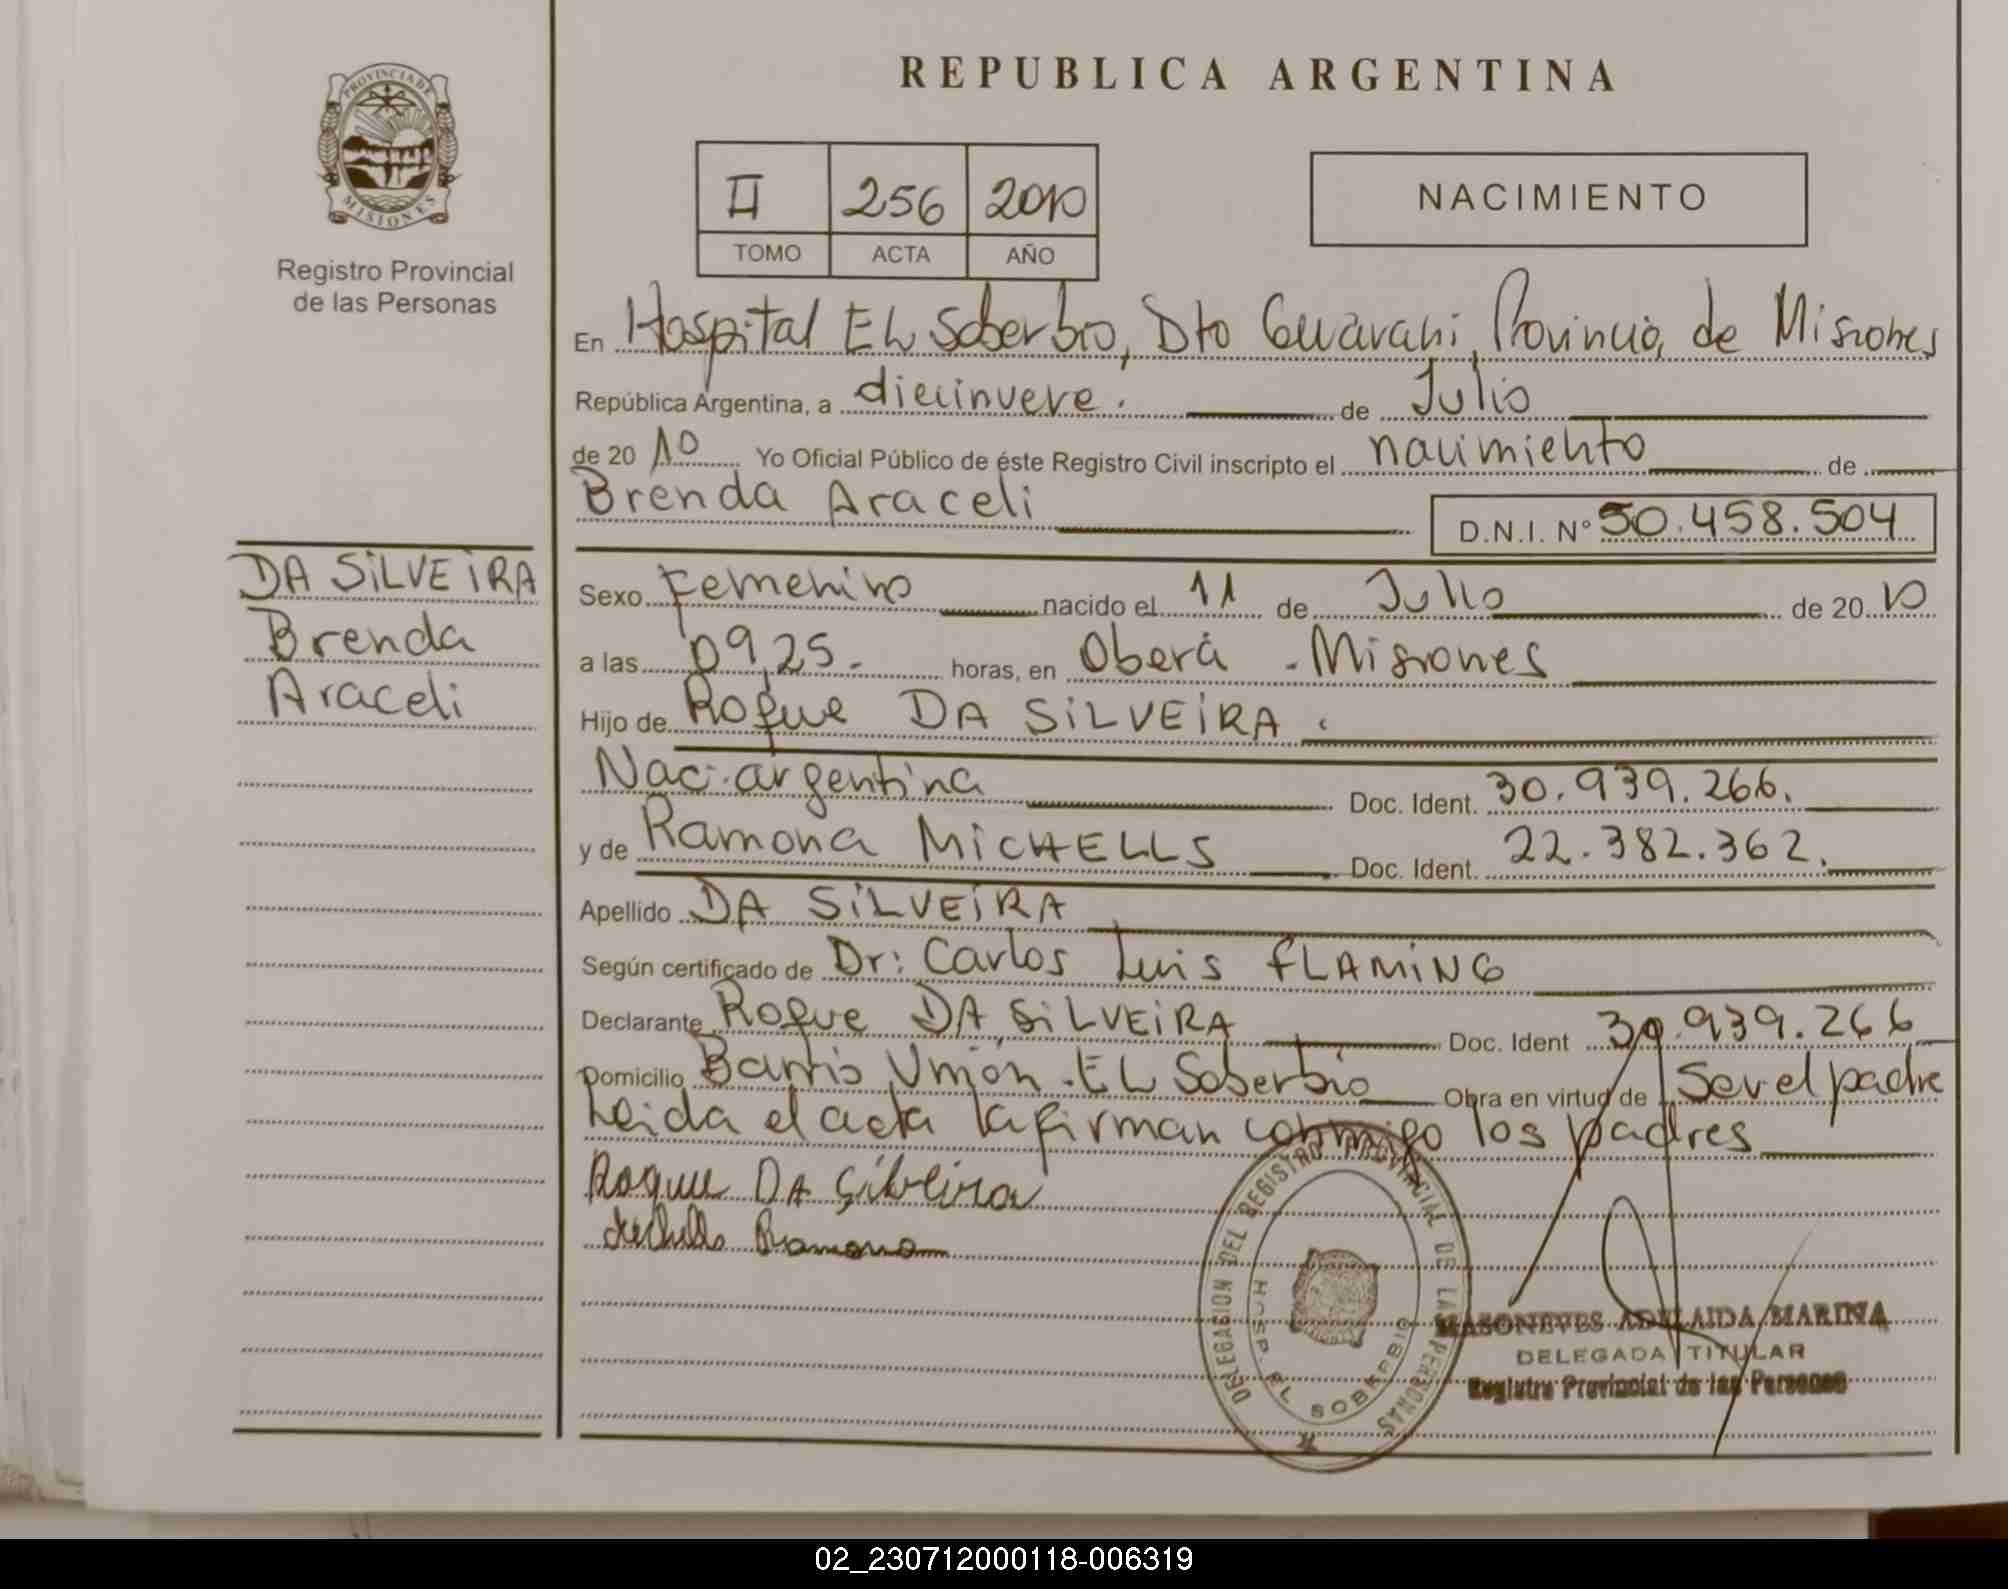 REPUBLICA ARGENTINA
PROVINCIA DE MISIONES
Registro Provincial
de las Personas
II 256 2010
TOMO ACTA AÑO
NACIMIENTO
En Hospital EL Soberbio, Dto Guarani, Provincia de Misiones
República Argentina, a diecinueve. de Julio
de 20 10 Yo Oficial Público de éste Registro Civil inscripto el nacimiento de
Brenda Araceli D.N.I. Nº 50.458.504
DA SiLVEiRA
Brenda
Araceli
Sexo Femenino nacido el 11 de Julio de 20 10
a las 09,25. horas, en Oberá - Misiones
Hijo de Roque DA SiLVEiRA.
Nac. argentina Doc. Ident. 30.939.266.
y de Ramona MiCHELLS Doc. Ident. 22.382.362.
Apellido DA SiLVEiRA
Según certificado de Dr: Carlos Luis FLAMiNG
Declarante Roque DA SiLVEiRA Doc. Ident 30.939.266
Domicilio Barrio Unión. EL Soberbio Obra en virtud de Ser el padre
Leida el acta la firman conmigo los padres
Roque DA Silveira
Ramona
DELEGACION DEL REGISTRO PROVINCIAL DE LAS PERSONAS
HOSP. EL SOBERBIO
MASONEVES ADELAIDA MARINA
DELEGADA TITULAR
Registro Provincial de las Personas
02_230712000118-006319